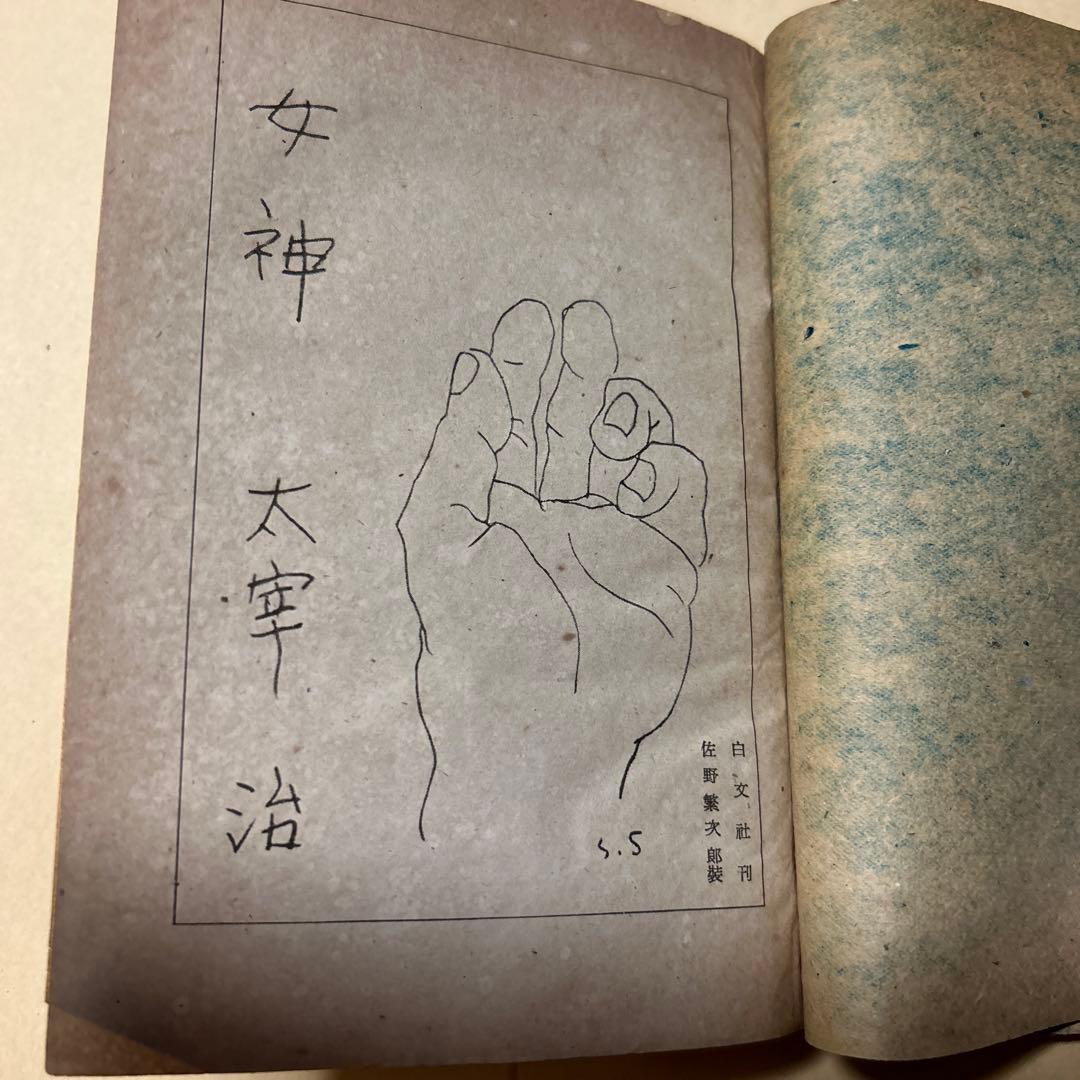 女神　太宰治
白文社刊
佐野繁次郎装
S.S